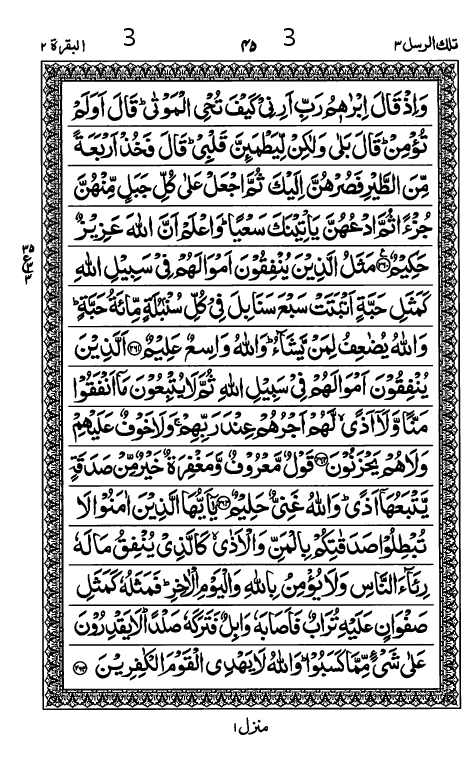 البقرة ٢ 3 ٤٥ 3 تلك الرسل ٣
وَاِذْ قَالَ اِبْرٰهٖمُ رَبِّ اَرِنِیْ كَیْفَ تُحْیِ الْمَوْتٰیؕ قَالَ اَوَلَمْ
تُؤْمِنْؕ قَالَ بَلٰی وَلٰكِنْ لِّیَطْمَىِٕنَّ قَلْبِیْؕ قَالَ فَخُذْ اَرْبَعَةً
مِّنَ الطَّیْرِ فَصُرْهُنَّ اِلَیْكَ ثُمَّ اجْعَلْ عَلٰی كُلِّ جَبَلٍ مِّنْهُنَّ
جُزْءًا ثُمَّ ادْعُهُنَّ یَاْتِیْنَكَ سَعْیًاؕ وَاعْلَمْ اَنَّ اللّٰهَ عَزِیْزٌ
حَكِیْمٌ ﴿۲۶۰﴾ مَثَلُ الَّذِیْنَ یُنْفِقُوْنَ اَمْوَالَهُمْ فِیْ سَبِیْلِ اللّٰهِ
كَمَثَلِ حَبَّةٍ اَنْۢبَتَتْ سَبْعَ سَنَابِلَ فِیْ كُلِّ سُنْۢبُلَةٍ مِّائَةُ حَبَّةٍؕ
وَاللّٰهُ یُضٰعِفُ لِمَنْ یَّشَآءُؕ وَاللّٰهُ وَاسِعٌ عَلِیْمٌ ﴿۲۶۱﴾ اَلَّذِیْنَ
یُنْفِقُوْنَ اَمْوَالَهُمْ فِیْ سَبِیْلِ اللّٰهِ ثُمَّ لَا یُتْبِعُوْنَ مَاۤ اَنْفَقُوْا
مَنًّا وَّلَاۤ اَذًیۙ لَّهُمْ اَجْرُهُمْ عِنْدَ رَبِّهِمْۚ وَلَا خَوْفٌ عَلَیْهِمْ
وَلَا هُمْ یَحْزَنُوْنَ ﴿۲۶۲﴾ قَوْلٌ مَّعْرُوْفٌ وَّمَغْفِرَةٌ خَیْرٌ مِّنْ صَدَقَةٍ
یَّتْبَعُهَاۤ اَذًیؕ وَاللّٰهُ غَنِیٌّ حَلِیْمٌ ﴿۲۶۳﴾ یٰۤاَیُّهَا الَّذِیْنَ اٰمَنُوْا لَا
تُبْطِلُوْا صَدَقٰتِكُمْ بِالْمَنِّ وَالْاَذٰیۙ كَالَّذِیْ یُنْفِقُ مَالَهٗ
رِئَآءَ النَّاسِ وَلَا یُؤْمِنُ بِاللّٰهِ وَالْیَوْمِ الْاٰخِرِؕ فَمَثَلُهٗ كَمَثَلِ
صَفْوَانٍ عَلَیْهِ تُرَابٌ فَاَصَابَهٗ وَابِلٌ فَتَرَكَهٗ صَلْدًاؕ لَا یَقْدِرُوْنَ
عَلٰی شَیْءٍ مِّمَّا كَسَبُوْاؕ وَاللّٰهُ لَا یَهْدِی الْقَوْمَ الْكٰفِرِیْنَ ﴿۲۶۴﴾
منزل ١